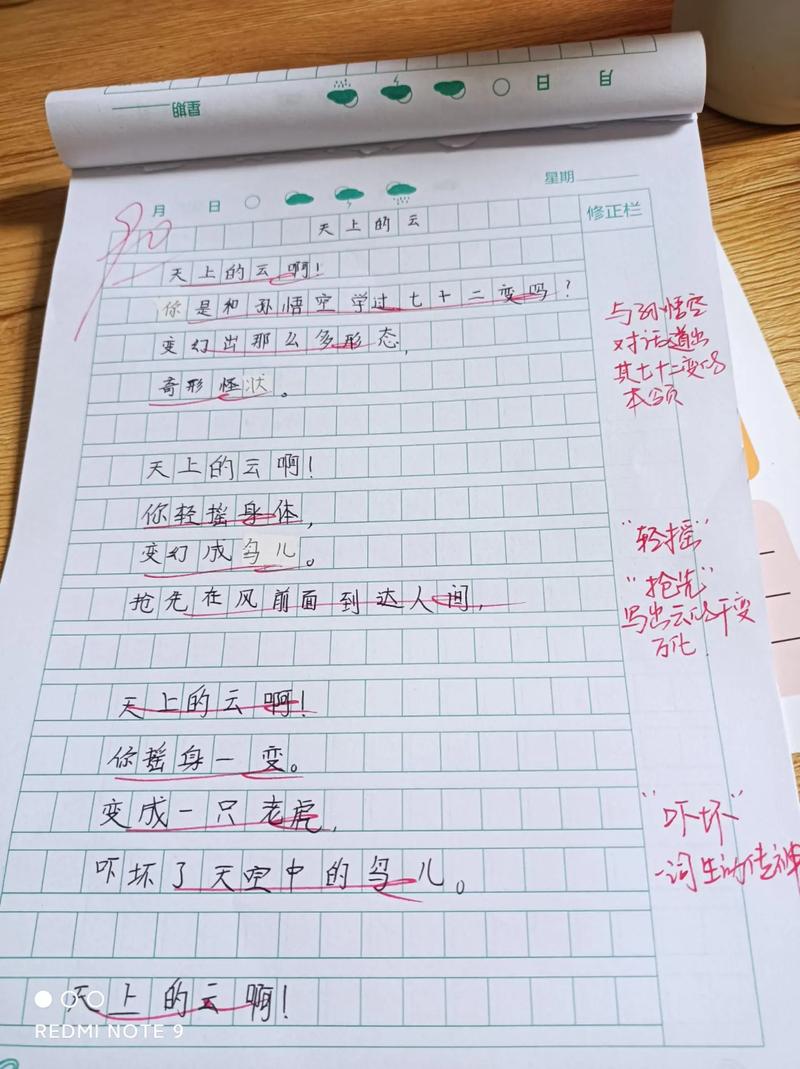 月 日 星期
月 日 星期
修正栏
天上的云
天上的云啊!
你是和孙悟空学过七十二变吗?
变幻出那么多形态,
奇形怪状。
与孙悟空
对话道出
其七十二变的
本领
天上的云啊!
你轻摇身体,
变幻成鸟儿。
抢先在风前面到达人间,
"轻摇"
"抢先"
写出云的千变
万化.
天上的云啊!
你摇身一变。
变成一只老虎,
吓坏了天空中的鸟儿。
"吓坏"
一词生动传神
天上的云啊!
REDMI NOTE 9